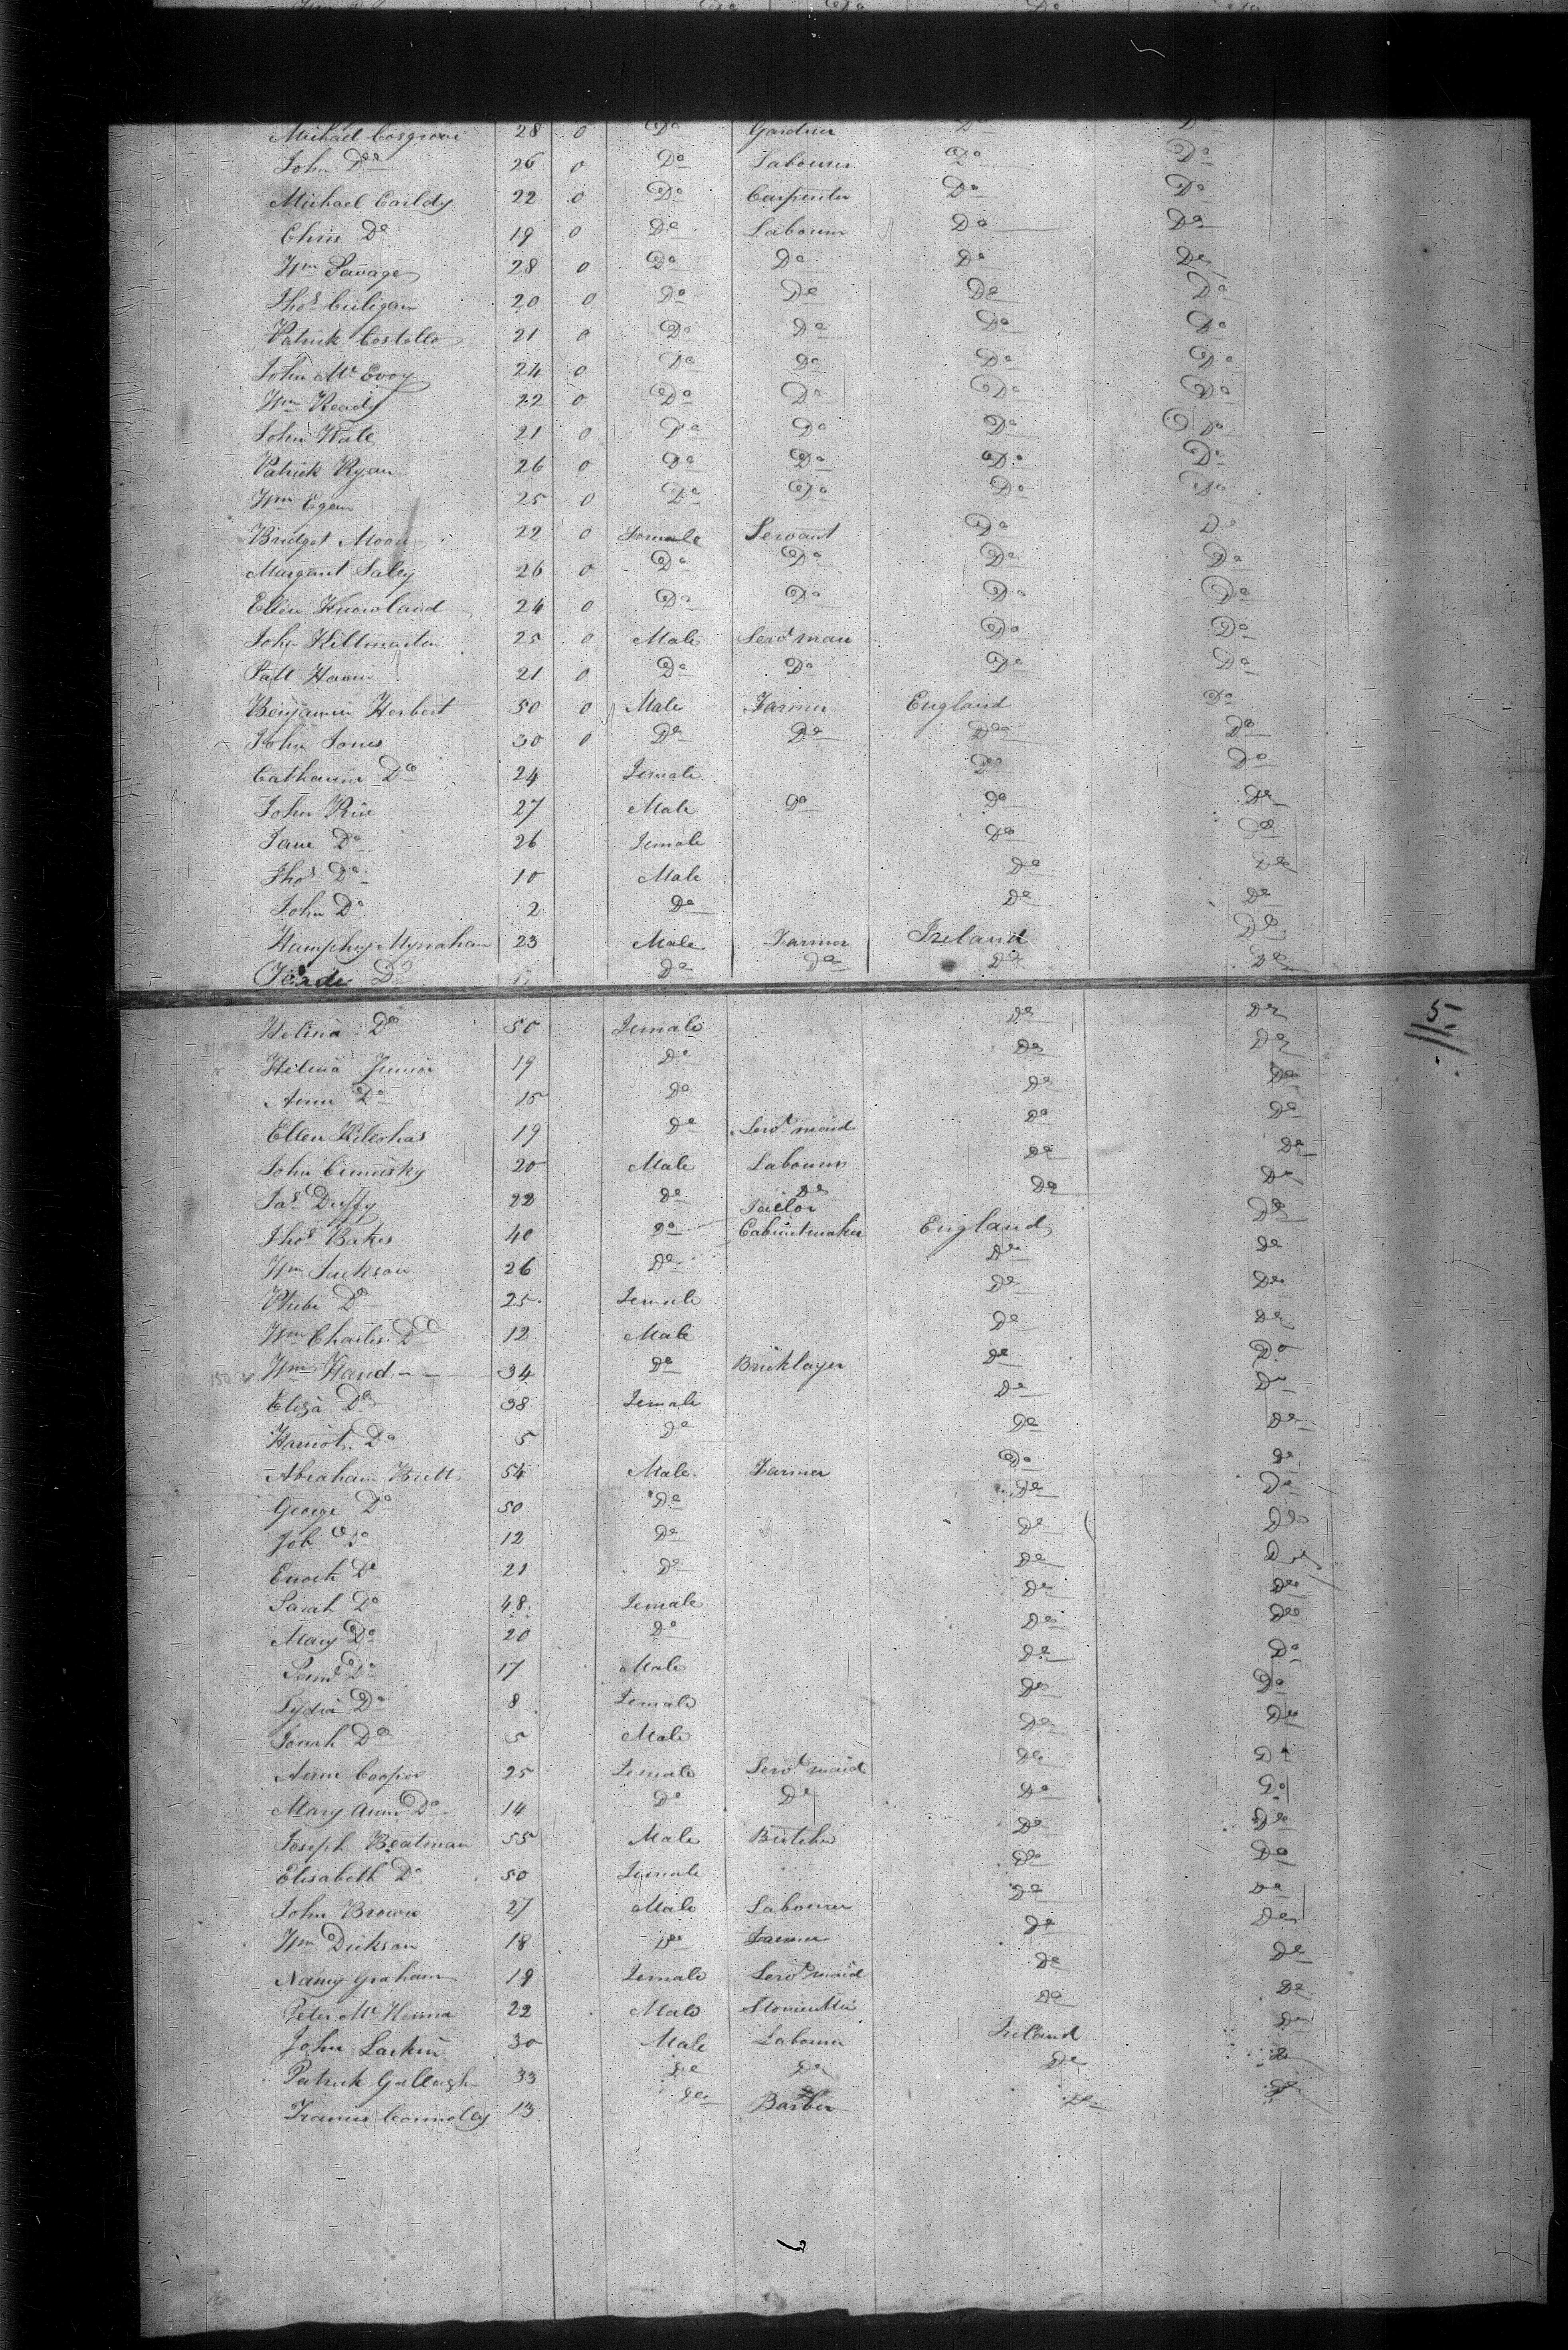 Michael Cosgrove 28 0 Do Gardner Do Do
John Do 26 0 Do Labourer Do Do
Michael 22 0 Do Carpenter Do Do
Chris Do 19 0 Do Labourer Do Do
Wm Savage 28 0 Do Do Do Do
Thos Culigan 20 0 Do Do Do Do
Patrick Costello 21 0 Do Do Do Do
John Mc Evoy 24 0 Do Do Do Do
Wm Ready 22 0 Do Do Do Do
John 21 0 Do Do Do Do
Patrick Ryan 26 0 Do Do Do Do
Wm Egan 25 0 Do Do Do Do
Bridget Moon 22 0 Female Servant Do Do
Margaret 26 0 Do Do Do Do
Ellen Knowland 24 0 Do Do Do Do
John Killmartin 25 0 Male Servt man Do Do
Patt 21 0 Do Do Do Do
Benjamin Herbert 50 0 Male Farmer England Do
John Jones 30 0 Do Do Do Do
Catharine Do 24 Female Do Do
John Rice 27 Male Do Do Do
Jane Do 26 Female Do Do
Thos Do 10 Male Do Do
John Do 2 Do Do Do
Humphry Mynahan 23 Male Farmer Ireland Do
Do Do Do Do Do
5
Helina Do 50 Female Do Do
Helina Junior 19 Do Do Do
Anne Do 15 Do Do Do
Ellen 19 Do Servt maid Do Do
John 20 Male Labourer Do Do
Jas Duffy 22 Do Do Do Do
Tailor
Thos Baker 40 Do Cabinetmaker England Do
Wm Jackson 26 Do Do Do
Phebe Do 25 Female Do Do
Wm Charles Do 12 Male Do Do
150 Wm Hand 34 Do Bricklayer Do Do
Eliza Do 38 Female Do Do
Harriot Do 5 Do Do Do
Abraham Butt 54 Male Farmer Do Do
George Do 50 Do Do Do
Job Do 12 Do Do Do
Enoch Do 21 Do Do Do
Sarah Do 48 Female Do Do
Mary Do 20 Do Do Do
Saml Do 17 Male Do Do
Lydia Do 8 Female Do Do
Do 5 Male Do Do
Anne Cooper 25 Female Servt maid Do Do
Mary Anne Do 14 Do Do Do Do
Joseph Beatman 55 Male Butcher Do Do
Elisabeth Do 50 Female Do Do
John Brown 27 Male Labourer Do Do
Wm Dickson 18 Do Farmer Do Do
Nancy Graham 19 Female Servt maid Do Do
Peter Mc 22 Male Stonecutter Do Do
John Larkin 30 Male Labourer Ireland Do
Patrick Gallaugh 33 Do Do Do Do
Francis Connoley 13 Do Barber Do Do